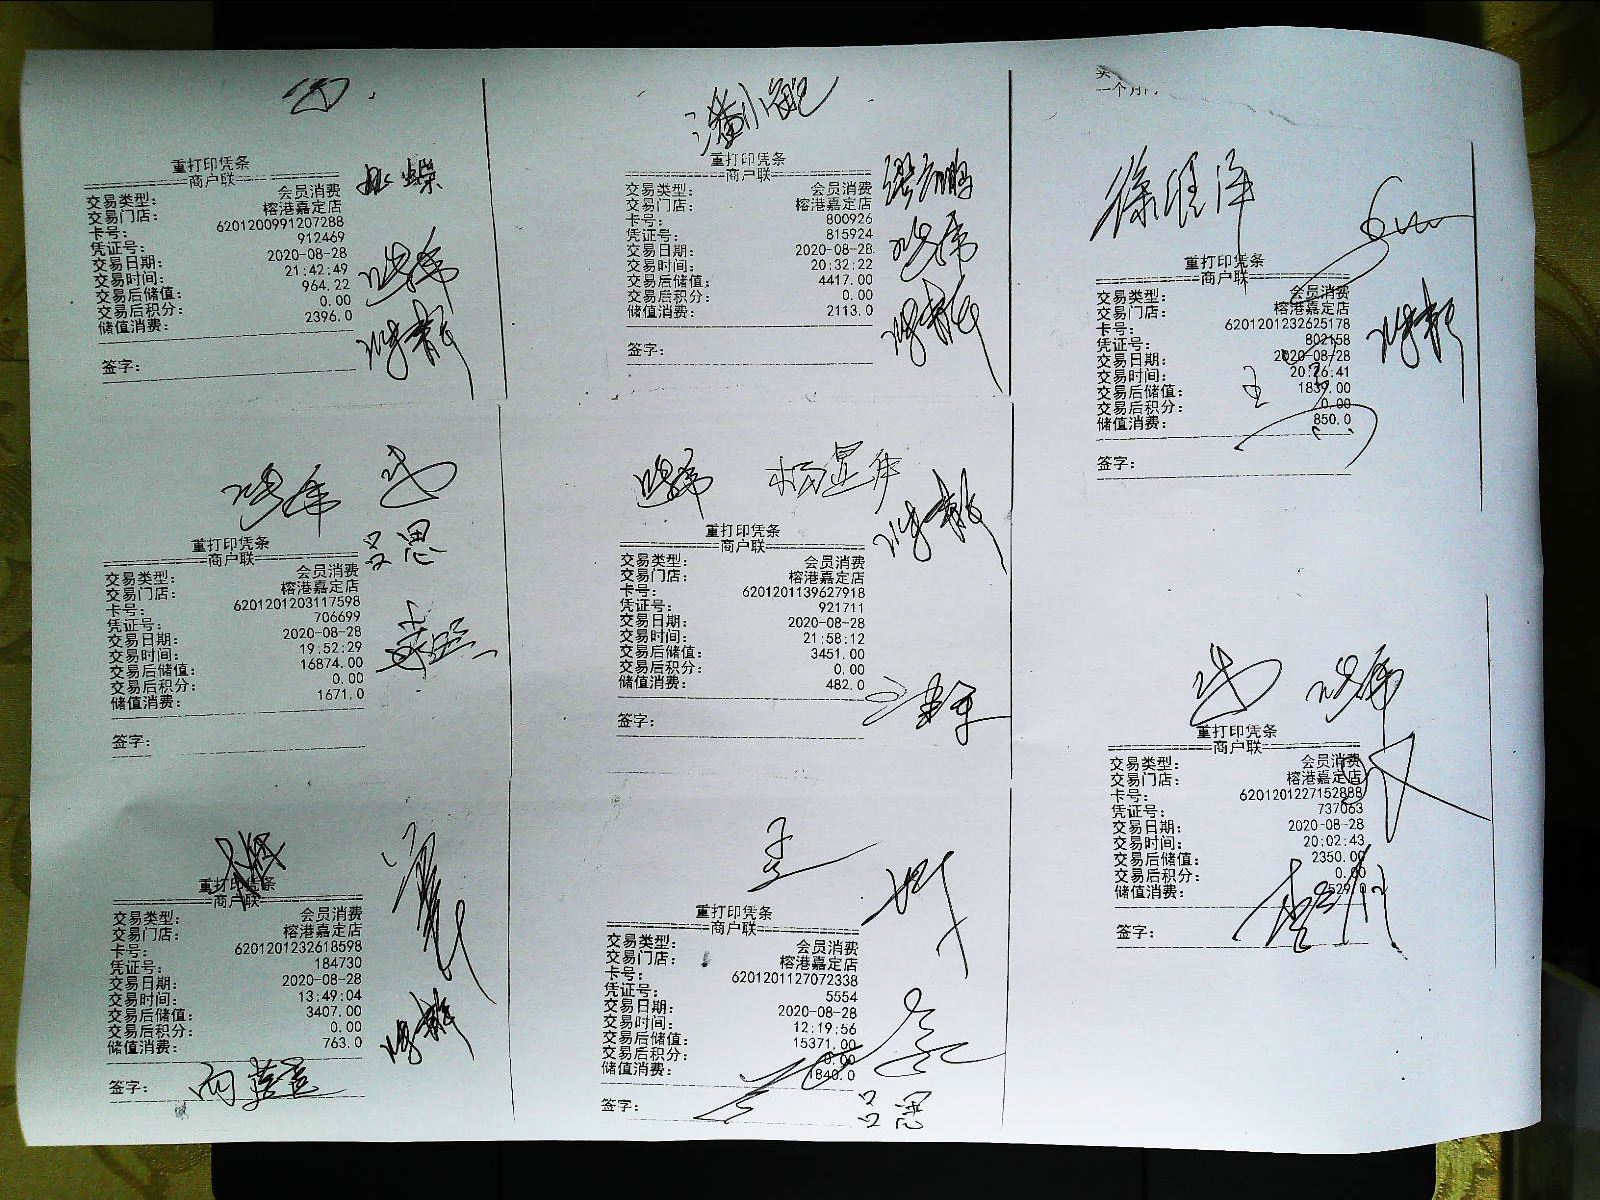 重打印凭条
商户联
交易类型: 会员消费
交易门店: 榕港嘉定店
卡号: 6201200991207288
凭证号: 912469
交易日期: 2020-08-28
交易时间: 21:42:49
交易后储值: 964.22
交易后积分: 0.00
储值消费: 2396.0
签字:
潘小肥
重打印凭条
商户联
交易类型: 会员消费
交易门店: 榕港嘉定店
卡号: 800926
凭证号: 815924
交易日期: 2020-08-28
交易时间: 20:32:22
交易后储值: 4417.00
交易后积分: 0.00
储值消费: 2113.0
签字:
重打印凭条
商户联
交易类型: 会员消费
交易门店: 榕港嘉定店
卡号: 6201201232625178
凭证号: 802158
交易日期: 2020-08-28
交易时间: 20:26:41
交易后储值: 1839.00
交易后积分: 0.00
储值消费: 850.0
签字:
吕思
重打印凭条
商户联
交易类型: 会员消费
交易门店: 榕港嘉定店
卡号: 6201201203117598
凭证号: 706699
交易日期: 2020-08-28
交易时间: 19:52:29
交易后储值: 16874.00
交易后积分: 0.00
储值消费: 1671.0
签字:
重打印凭条
商户联
交易类型: 会员消费
交易门店: 榕港嘉定店
卡号: 6201201139627918
凭证号: 921711
交易日期: 2020-08-28
交易时间: 21:58:12
交易后储值: 3451.00
交易后积分: 0.00
储值消费: 482.0
签字:
重打印凭条
商户联
交易类型: 会员消费
交易门店: 榕港嘉定店
卡号: 6201201227152888
凭证号: 737063
交易日期: 2020-08-28
交易时间: 20:02:43
交易后储值: 2350.00
交易后积分: 0.00
储值消费:
签字:
重打印凭条
商户联
交易类型: 会员消费
交易门店: 榕港嘉定店
卡号: 6201201232618598
凭证号: 184730
交易日期: 2020-08-28
交易时间: 13:49:04
交易后储值: 3407.00
交易后积分: 0.00
储值消费: 763.0
签字:
重打印凭条
商户联
交易类型: 会员消费
交易门店: 榕港嘉定店
卡号: 6201201127072338
凭证号: 5554
交易日期: 2020-08-28
交易时间: 12:19:56
交易后储值: 15371.00
交易后积分: 0.00
储值消费: 1840.0
签字:
吕思